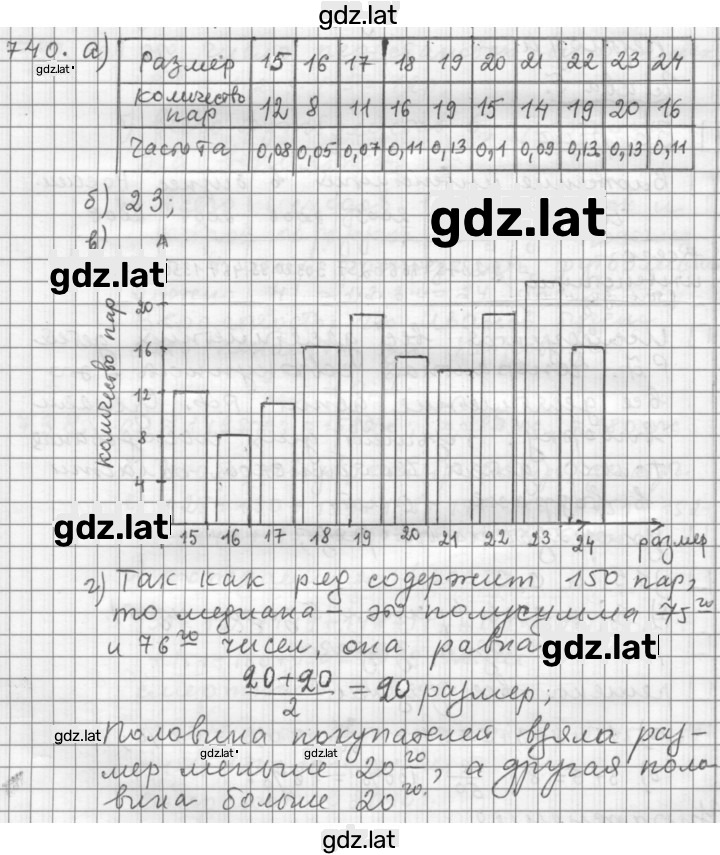 gdz.lat
740. а) Размер 15 16 17 18 19 20 21 22 23 24
gdz.lat
количество пар 12 8 11 16 19 15 14 19 20 16
Частота 0,08 0,05 0,07 0,11 0,13 0,1 0,09 0,13 0,13 0,11
б) 23;
gdz.lat
в)
gdz.lat
количество пар
20
16
12
8
4
gdz.lat
15 16 17 18 19 20 21 22 23 24
размер
г) Так как ряд содержит 150 пар,
то медиана – это полусумма 75го
и 76го чисел, она равна
gdz.lat
20+20
2
= 20 размер;
gdz.lat
Половина покупателей взяла раз-
gdz.lat gdz.lat
мер меньше 20го, а другая поло-
вина больше 20го.
gdz.lat